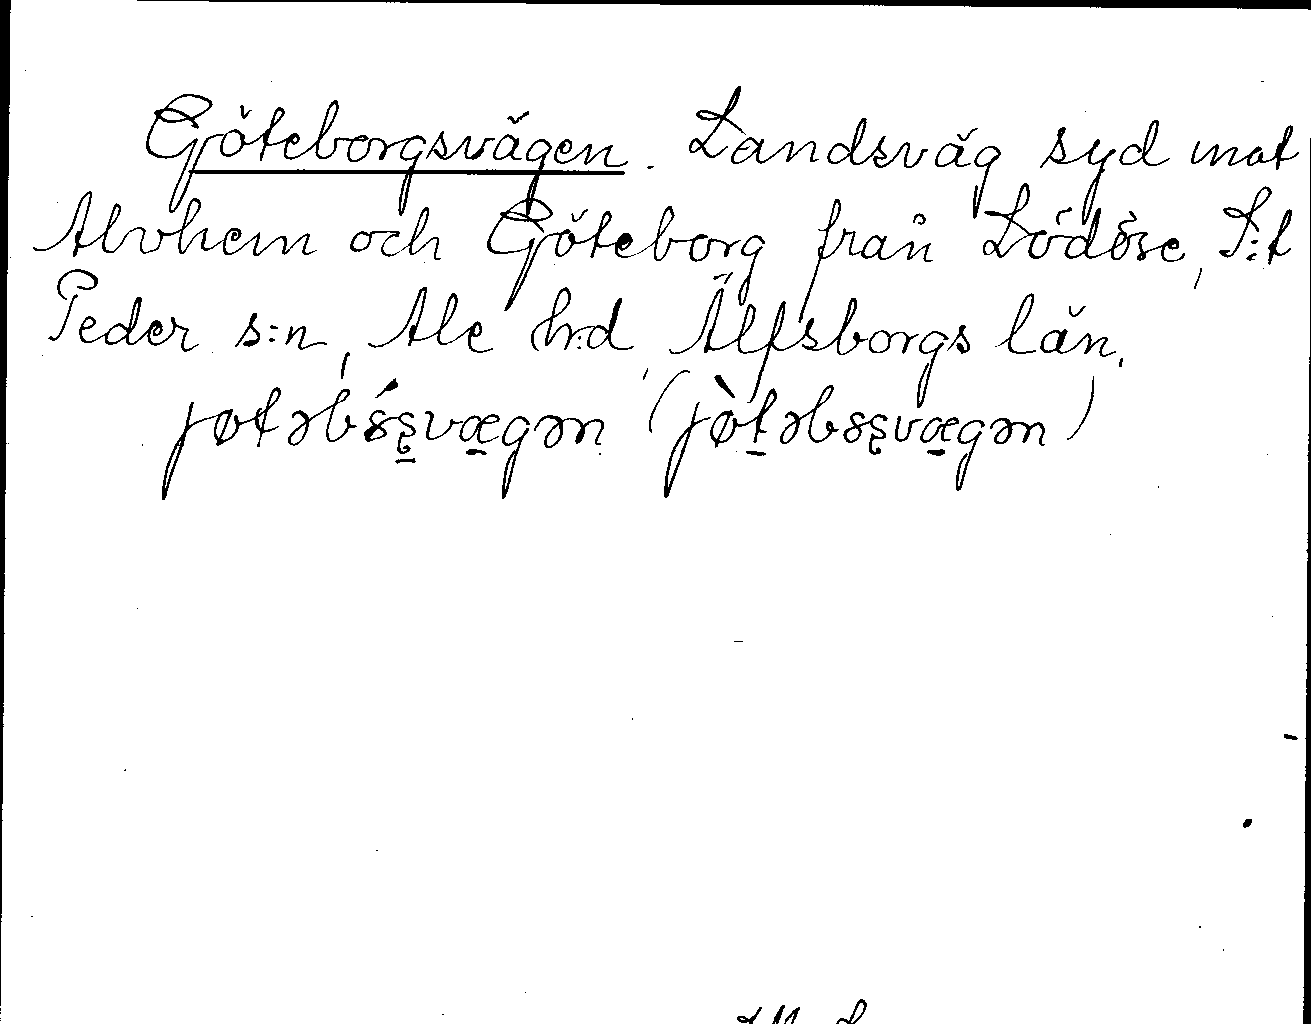 Göteborgsvägen. Landsväg syd mot
Alvhem och Göteborg från Lödöse, S:t
Peder s:n, Ale hrd, Älfsborgs län.
jøtəbśʂvægən (jø̀təbsʂvægən)